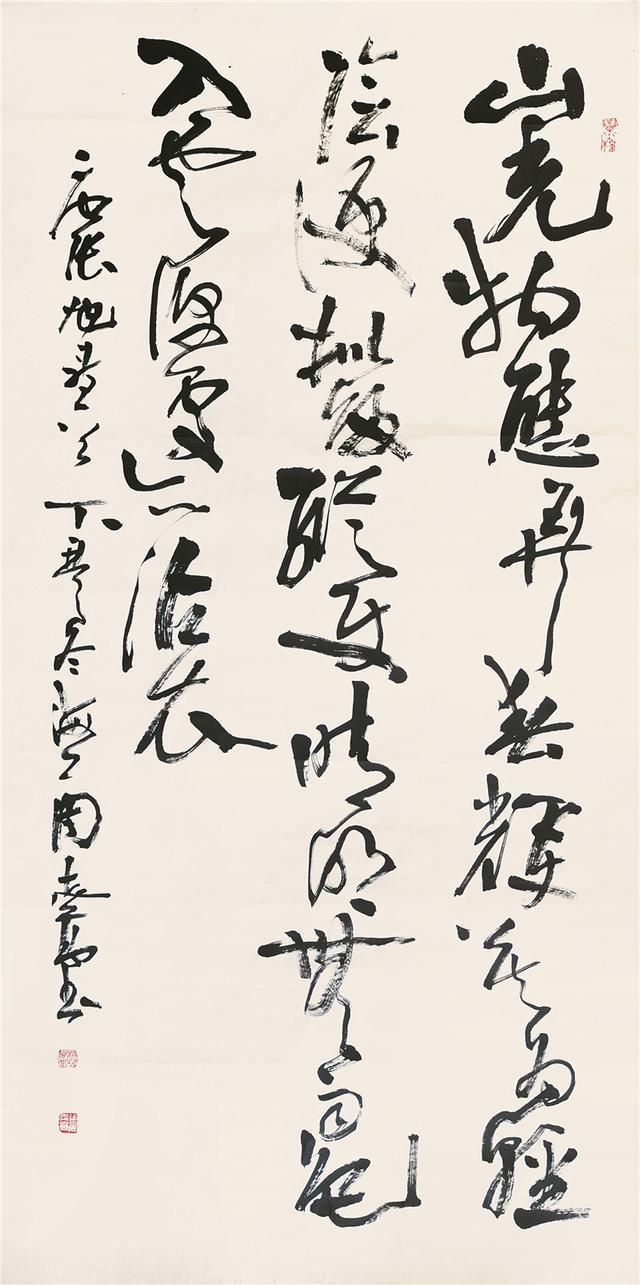 山光物態弄春輝莫為輕
陰便擬歸縱使晴明無雨色
入雲深處亦沾衣
唐張旭 丁丑冬海上周慧珺